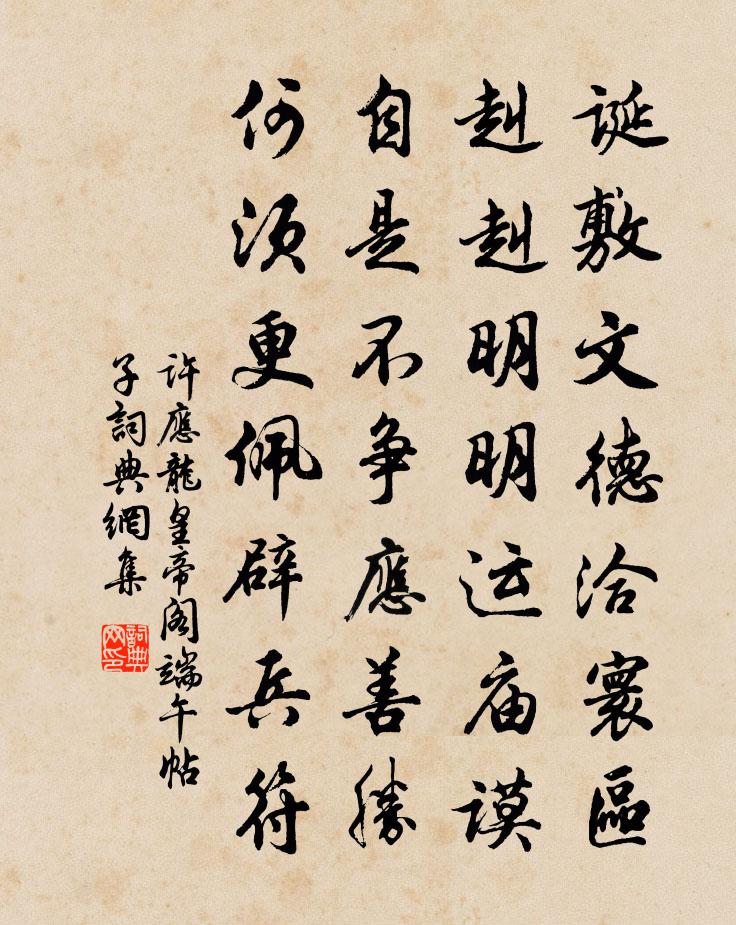 诞敷文德洽寰區
赳赳明明运庙谟
自是不争應善勝
何须更佩辟兵符
許應龍皇帝阁端午帖
子詞典網集
詞典网印